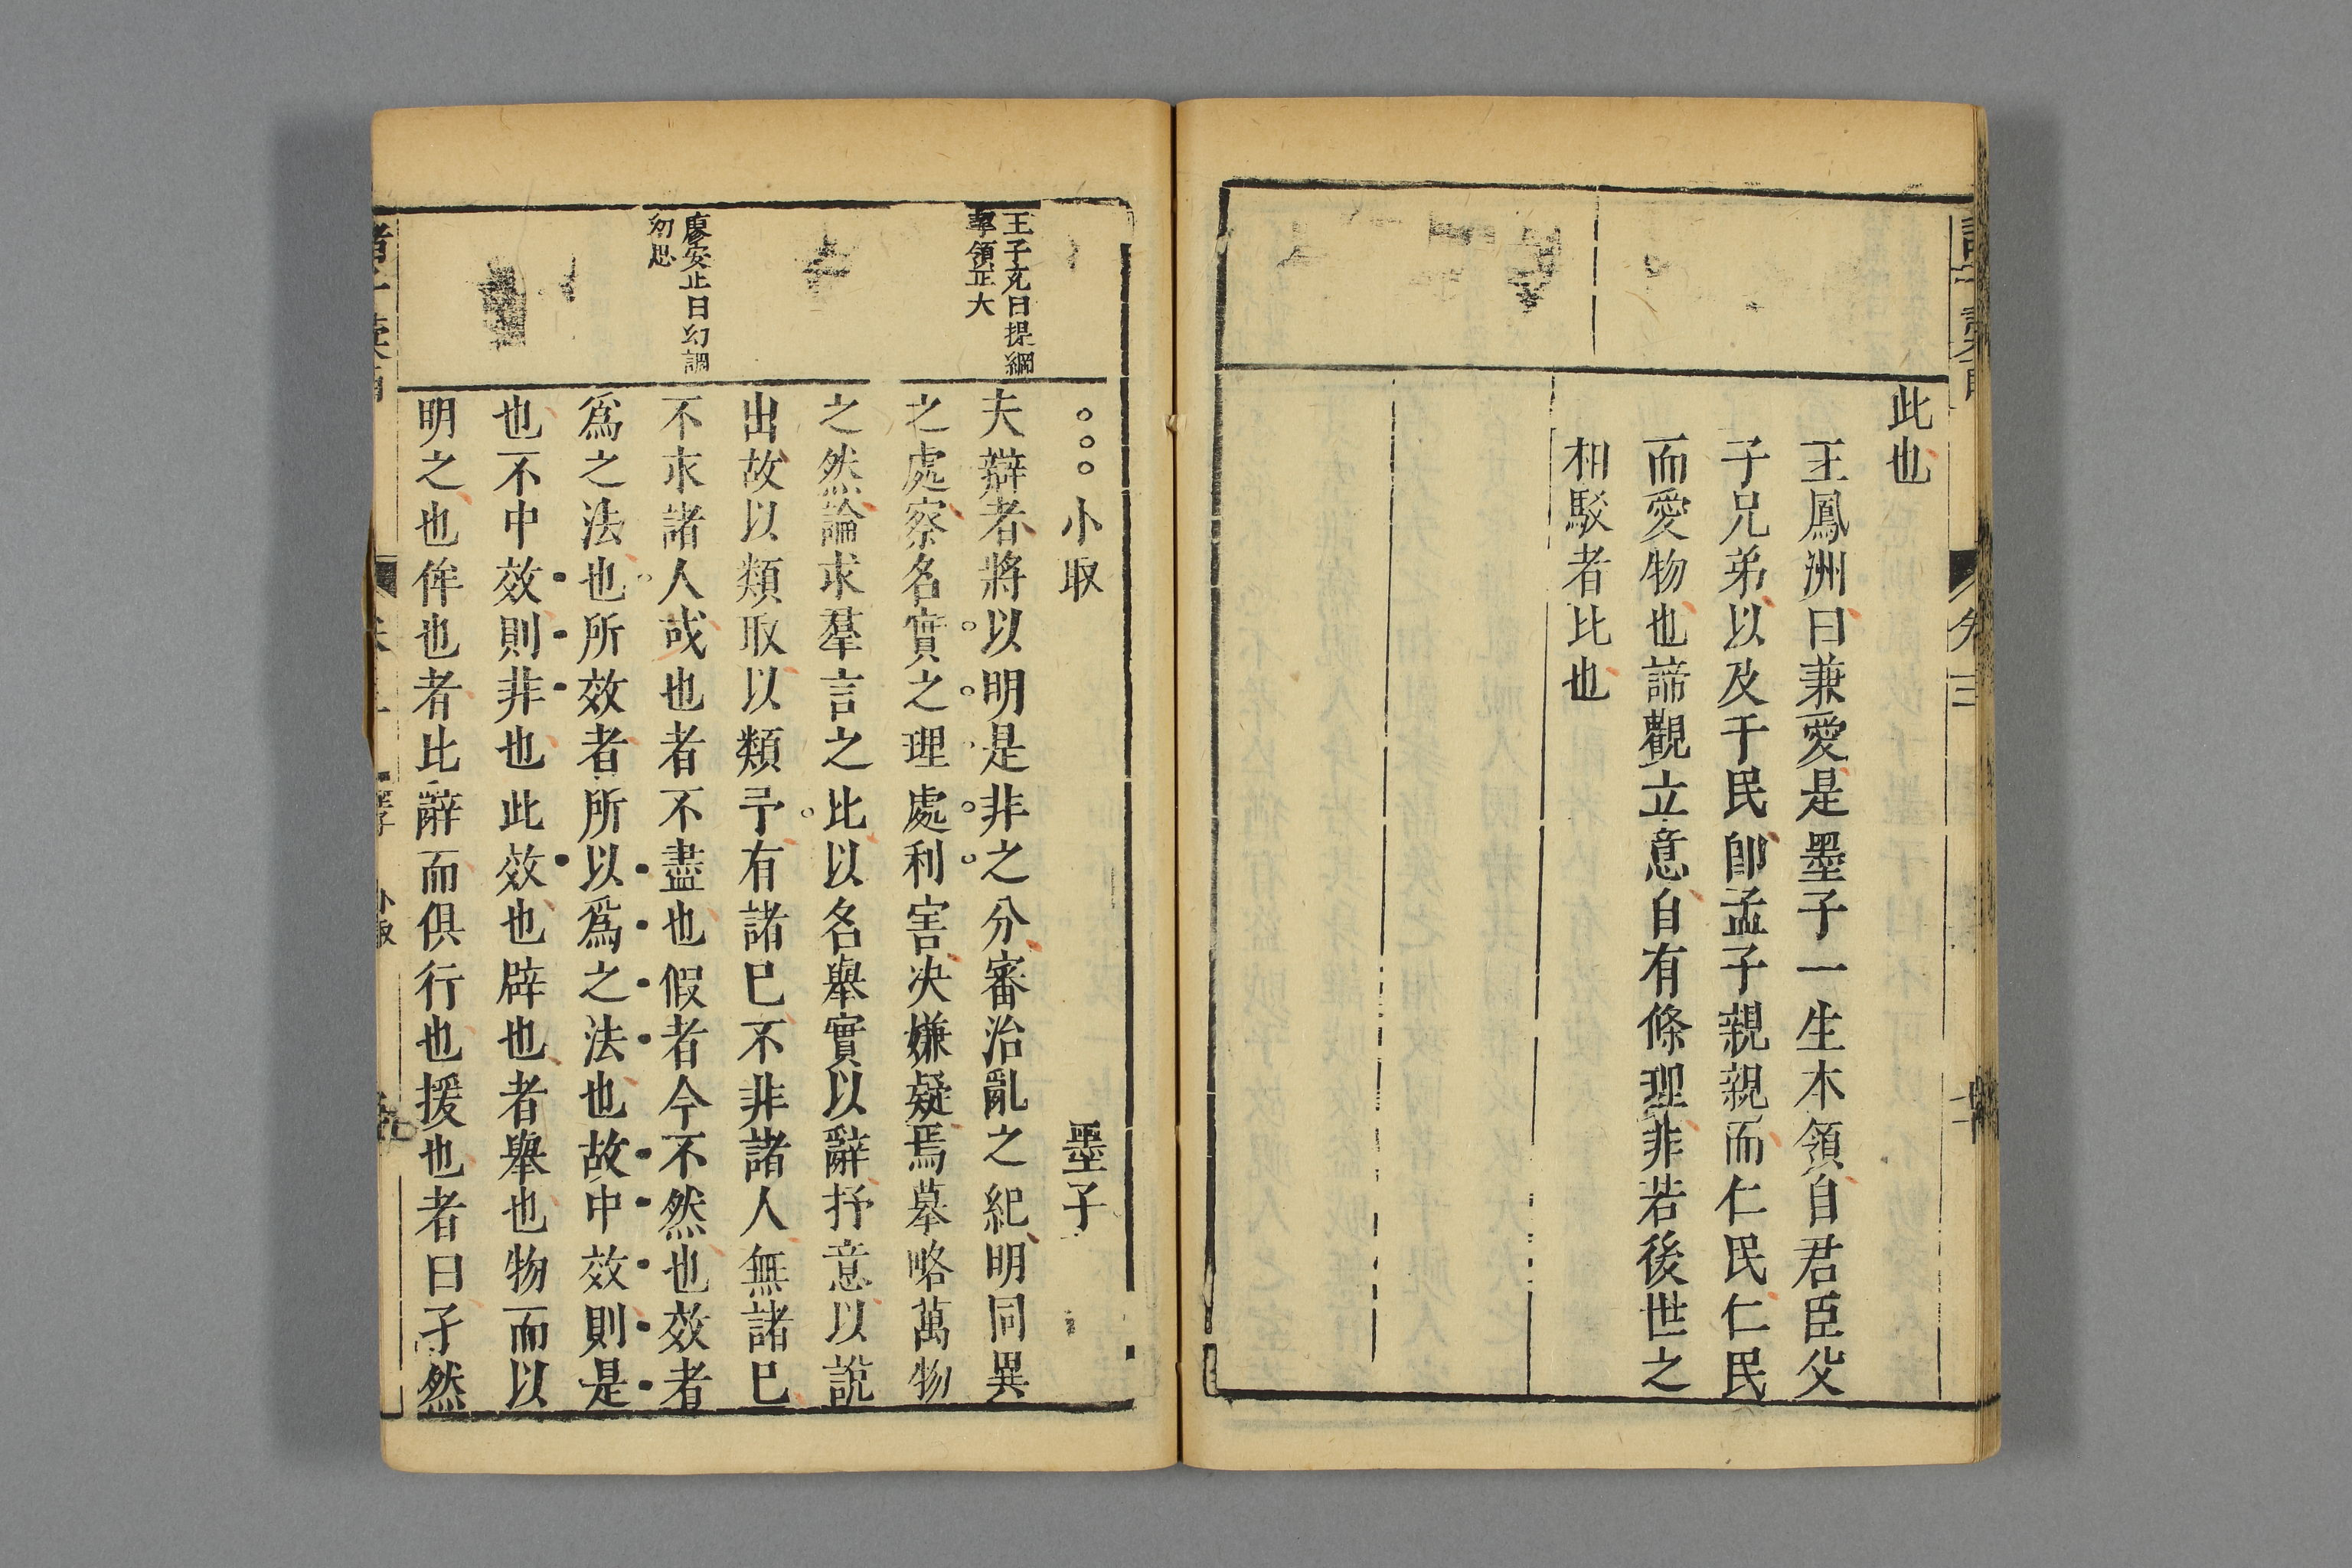 此也
王鳳洲曰兼愛是墨子一生本領自君臣父
子兄弟以及于民卽孟子親親而仁民仁民
而愛物也諦觀立意自有條理非若後世之
相駁者比也
小取 墨子
王子充曰提綱
挈領正大
夫辯者將以明是非之分審治亂之紀明同異
之處察名實之理處利害决嫌疑焉摹略萬物
之然論求羣言之比以名舉實以辭抒意以說
出故以類取以類予有諸己不非諸人無諸己
廖安止曰幻調
幻思
不求諸人或也者不盡也假者今不然也效者
爲之法也所效者所以爲之法也故中效則是
也不中效則非也此效也辟也者舉也物而以
明之也侔也者比辭而俱行也援也者曰子然